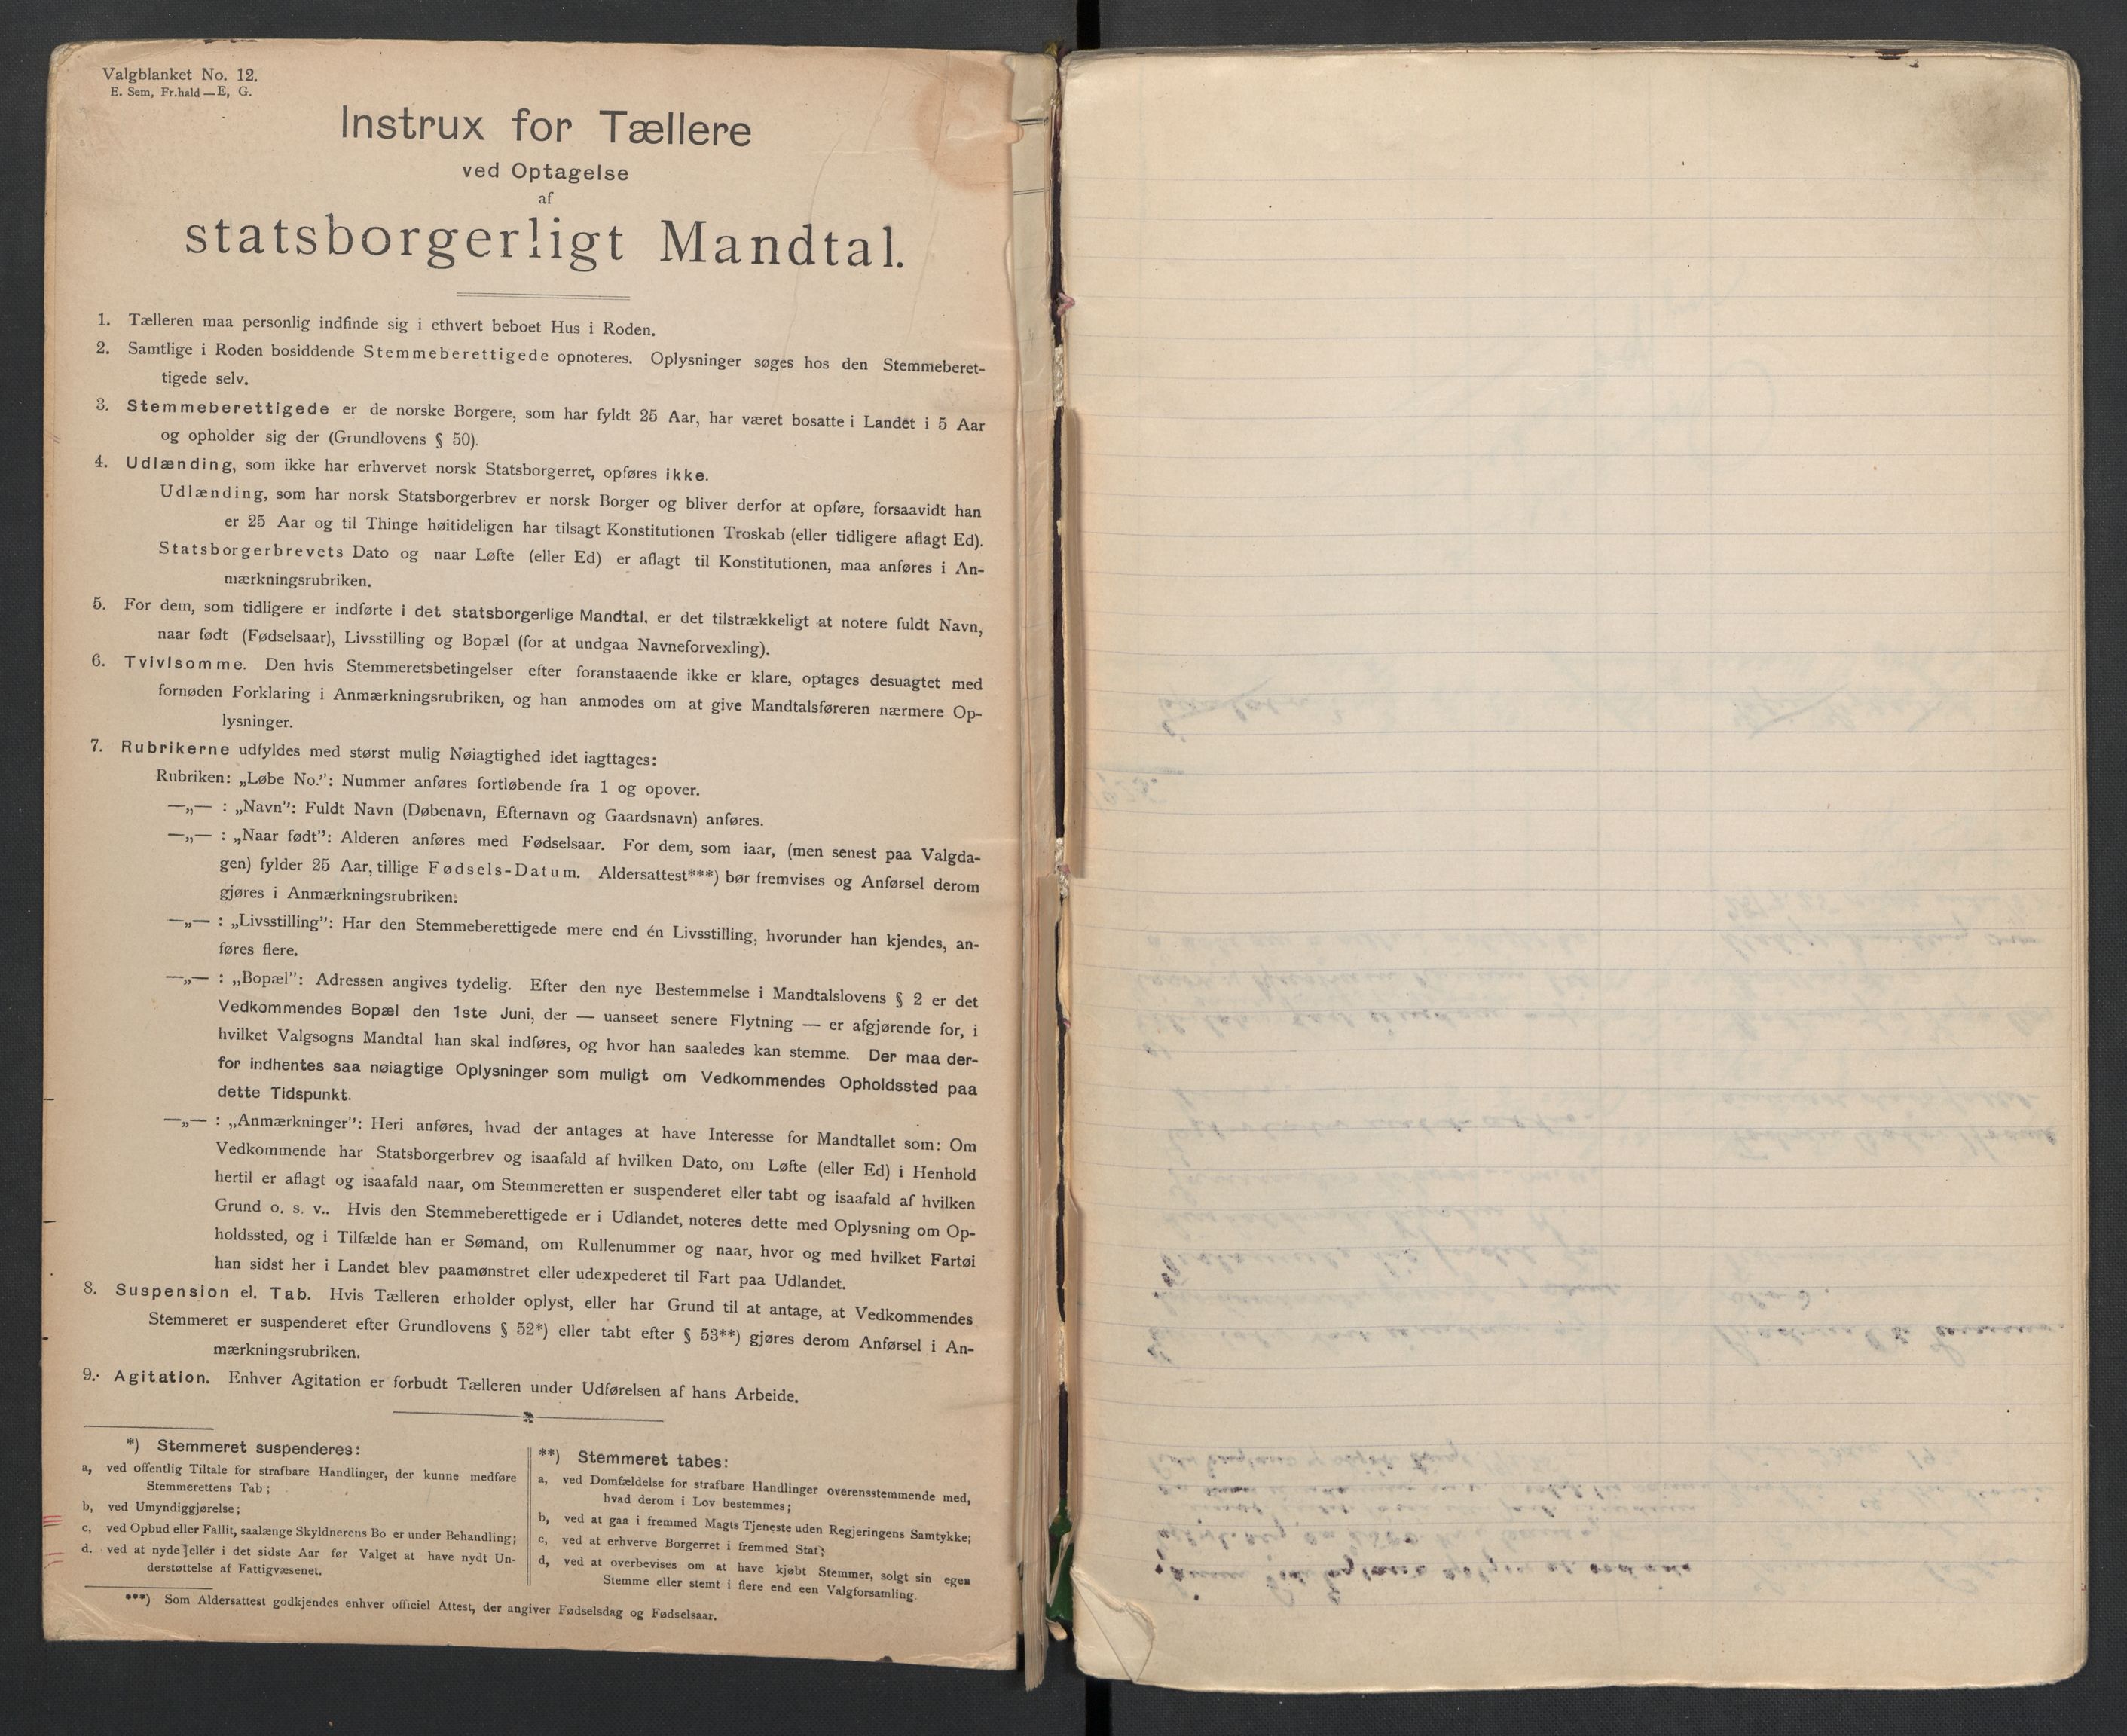 Valgblanket No. 12.
E. Sem, Fr.hald — E, G.
Instrux for Tællere
ved Optagelse
af
statsborgerligt Mandtal.
1. Tælleren maa personlig indfinde sig i ethvert beboet Hus i Roden.
2. Samtlige i Roden bosiddende Stemmeberettigede opnoteres. Oplysninger søges hos den Stemmeberet-
tigede selv.
3. Stemmeberettigede er de norske Borgere, som har fyldt 25 Aar, har været bosatte i Landet i 5 Aar
og opholder sig der (Grundlovens § 50).
4. Udlænding, som ikke har erhvervet norsk Statsborgerret, opføres ikke.
Udlænding, som har norsk Statsborgerbrev er norsk Borger og bliver derfor at opføre, forsaavidt han
er 25 Aar og til Thinge høitideligen har tilsagt Konstitutionen Troskab (eller tidligere aflagt Ed).
Statsborgerbrevets Dato og naar Løfte (eller Ed) er aflagt til Konstitutionen, maa anføres i An-
mærkningsrubriken.
5. For dem, som tidligere er indførte i det statsborgerlige Mandtal, er det tilstrækkeligt at notere fuldt Navn,
naar født (Fødselsaar), Livsstilling og Bopæl (for at undgaa Navneforvexling).
6. Tvivlsomme. Den hvis Stemmeretsbetingelser efter foranstaaende ikke er klare, optages desuagtet med
fornøden Forklaring i Anmærkningsrubriken, og han anmodes om at give Mandtalsføreren nærmere Op-
lysninger.
7. Rubrikerne udfyldes med størst mulig Nøiagtighed idet iagttages:
Rubriken: „Løbe No.”: Nummer anføres fortløbende fra 1 og opover.
—„— : „Navn”: Fuldt Navn (Døbenavn, Efternavn og Gaardsnavn) anføres.
—„— : „Naar født”: Alderen anføres med Fødselsaar. For dem, som iaar, (men senest paa Valgda-
gen) fylder 25 Aar, tillige Fødsels-Datum. Aldersattest***) bør fremvises og Anførsel derom
gjøres i Anmærkningsrubriken.
—„— : „Livsstilling”: Har den Stemmeberettigede mere end én Livsstilling, hvorunder han kjendes, an-
føres flere.
—„— : „Bopæl”: Adressen angives tydelig. Efter den nye Bestemmelse i Mandtalslovens § 2 er det
Vedkommendes Bopæl den 1ste Juni, der — uanseet senere Flytning — er afgjørende for, i
hvilket Valgsogns Mandtal han skal indføres, og hvor han saaledes kan stemme. Der maa der-
for indhentes saa nøiagtige Oplysninger som muligt om Vedkommendes Opholdssted paa
dette Tidspunkt.
—„— : „Anmærkninger”: Heri anføres, hvad der antages at have Interesse for Mandtallet som: Om
Vedkommende har Statsborgerbrev og isaafald af hvilken Dato, om Løfte (eller Ed) i Henhold
hertil er aflagt og isaafald naar, om Stemmeretten er suspenderet eller tabt og isaafald af hvilken
Grund o. s. v.. Hvis den Stemmeberettigede er i Udlandet, noteres dette med Oplysning om Op-
holdssted, og i Tilfælde han er Sømand, om Rullenummer og naar, hvor og med hvilket Fartøi
han sidst her i Landet blev paamønstret eller udexpederet til Fart paa Udlandet.
8. Suspension el. Tab. Hvis Tælleren erholder oplyst, eller har Grund til at antage, at Vedkommendes
Stemmeret er suspenderet efter Grundlovens § 52*) eller tabt efter § 53**) gjøres derom Anførsel i An-
mærkningsrubriken.
9. Agitation. Enhver Agitation er forbudt Tælleren under Udførelsen af hans Arbeide.
*) Stemmeret suspenderes:
a, ved offentlig Tiltale for strafbare Handlinger, der kunne medføre
Stemmerettens Tab;
b, ved Umyndiggjørelse;
c, ved Opbud eller Fallit, saalænge Skyldnerens Bo er under Behandling;
d. ved at nyde eller i det sidste Aar før Valget at have nydt Un-
derstøttelse af Fattigvæsenet.
**) Stemmeret tabes:
a, ved Domfældelse for strafbare Handlinger overensstemmende med,
hvad derom i Lov bestemmes;
b, ved at gaa i fremmed Magts Tjeneste uden Regjeringens Samtykke;
c, ved at erhverve Borgerret i fremmed Stat;
d, ved at overbevises om at have kjøbt Stemmer, solgt sin egen
Stemme eller stemt i flere end een Valgforsamling.
***) Som Aldersattest godkjendes enhver officiel Attest, der angiver Fødselsdag og Fødselsaar.